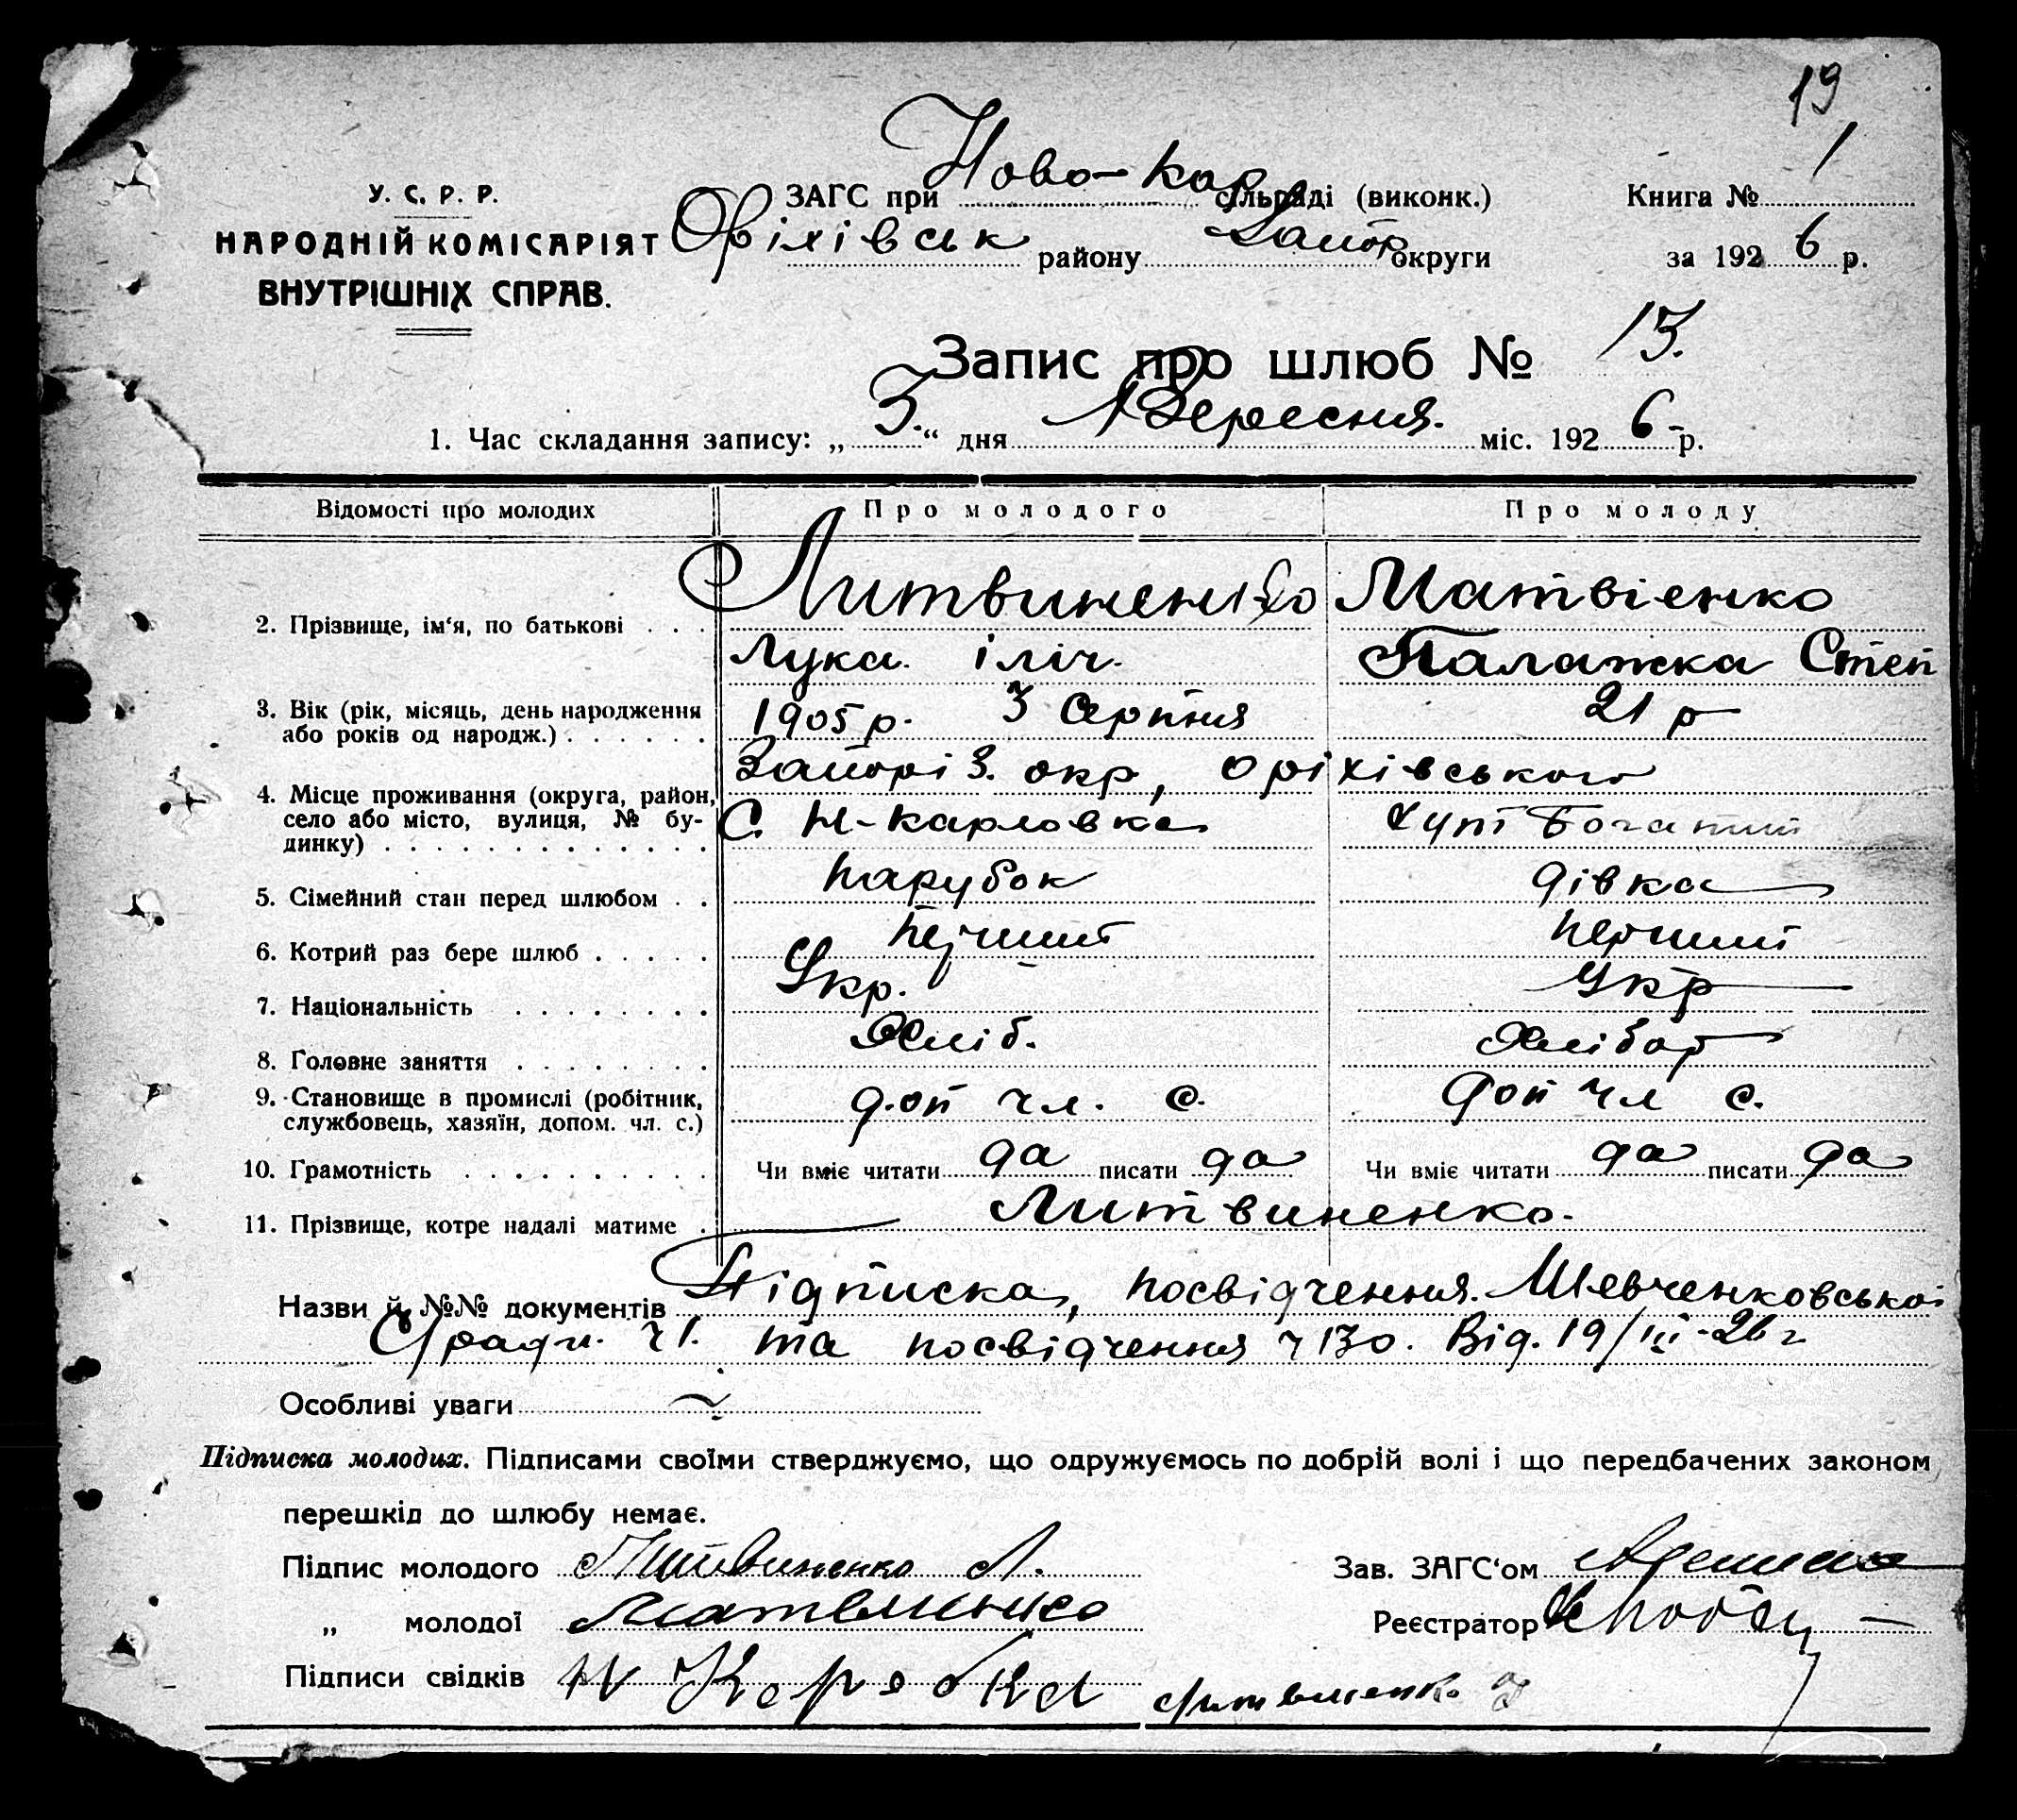 19
У. С. Р. Р.
НАРОДНІЙ КОМІСАРІЯТ
ВНУТРІШНІХ СПРАВ.
ЗАГС при Ново-Кар сільраді (виконк.)
Оріхівськ району Запор округи
Книга № 1
за 1926 р.
Запис про шлюб № 13.
1. Час складання запису: „3.“ дня Вересня. міс. 1926 р.
Відомості про молодих Про молодого Про молоду
2. Прізвище, ім'я, по батькові . . . Литвиненко Матвіенко
Лука іліч. Палажка Степ
3. Вік (рік, місяць, день народження або років од народж.) . . . . . . 1905 р. 3 Серпня 21 р
Запоріз. окр, оріхівського
4. Місце проживання (округа, район, село або місто, вулиця, № будинку) . . . . . . . . . . . . . С. Н-Карловка Хут Богатий
5. Сімейний стан перед шлюбом . . парубок дівка
6. Котрий раз бере шлюб . . . . . Перший Перший
7. Національність . . . . . . . . Укр. Укр
8. Головне заняття . . . . . . . . Хліб. Хлібор
9. Становище в промислі (робітник, службовець, хазяїн, допом. чл. с.) доп чл. с. доп чл с.
10. Грамотність . . . . . . . . . . Чи вміє читати да писати да Чи вміє читати да писати да
11. Прізвище, котре надалі матиме . Литвиненко.
Назви й №№ документів Підписка, посвідчення Шевченковської
С/ради. ч 1. та посвідчення ч 130. Від. 19/III-26 г
Особливі уваги
Підписка молодих. Підписами своїми стверджуємо, що одружуємось по добрій волі і що передбачених законом
перешкід до шлюбу немає.
Підпис молодого Литвиненко Л.
„ молодої Матвиенко
Підписи свідків Коробка Литвиненко
Зав. ЗАГС'ом
Реєстратор